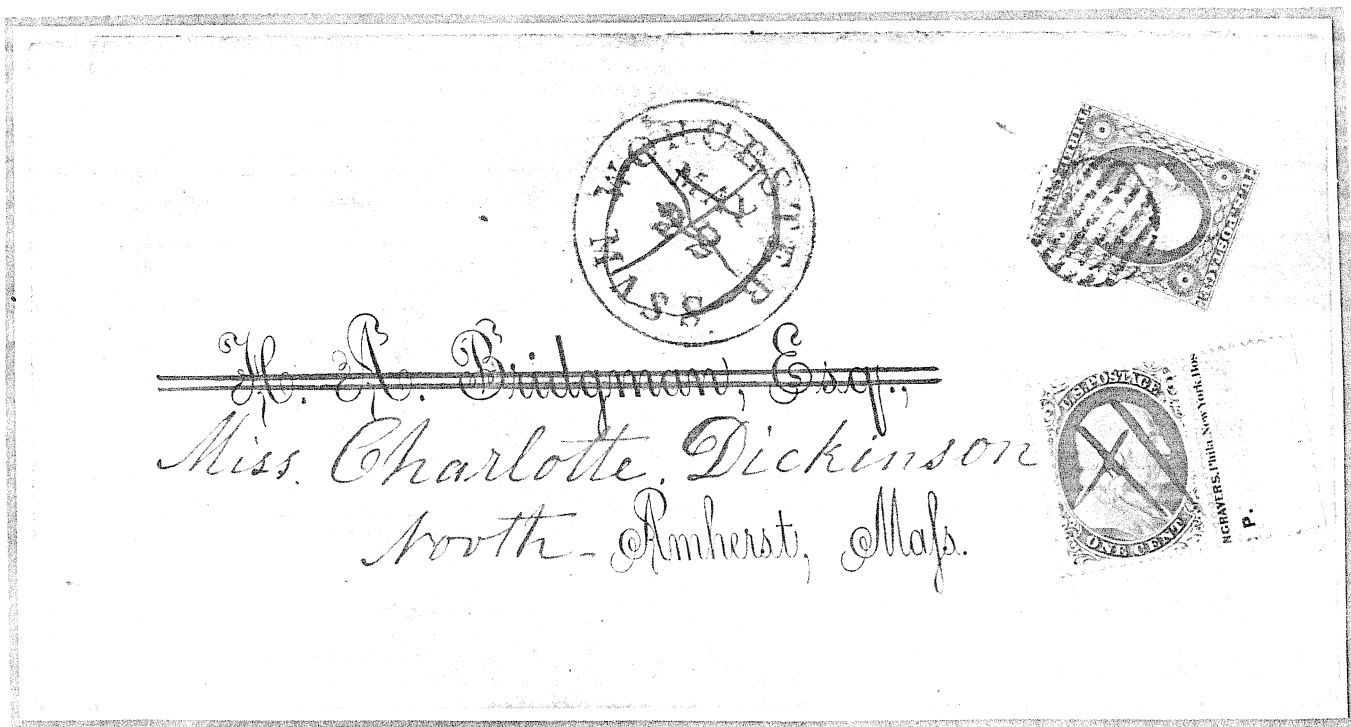 WORCESTER MASS.
MAY
H. A. Bridgman, Esq.,
Miss. Charlotte. Dickinson
North - Amherst, Maſs.
U.S. POSTAGE
ONE CENT
NGRAVERS, Phila. New York, Bos
P.